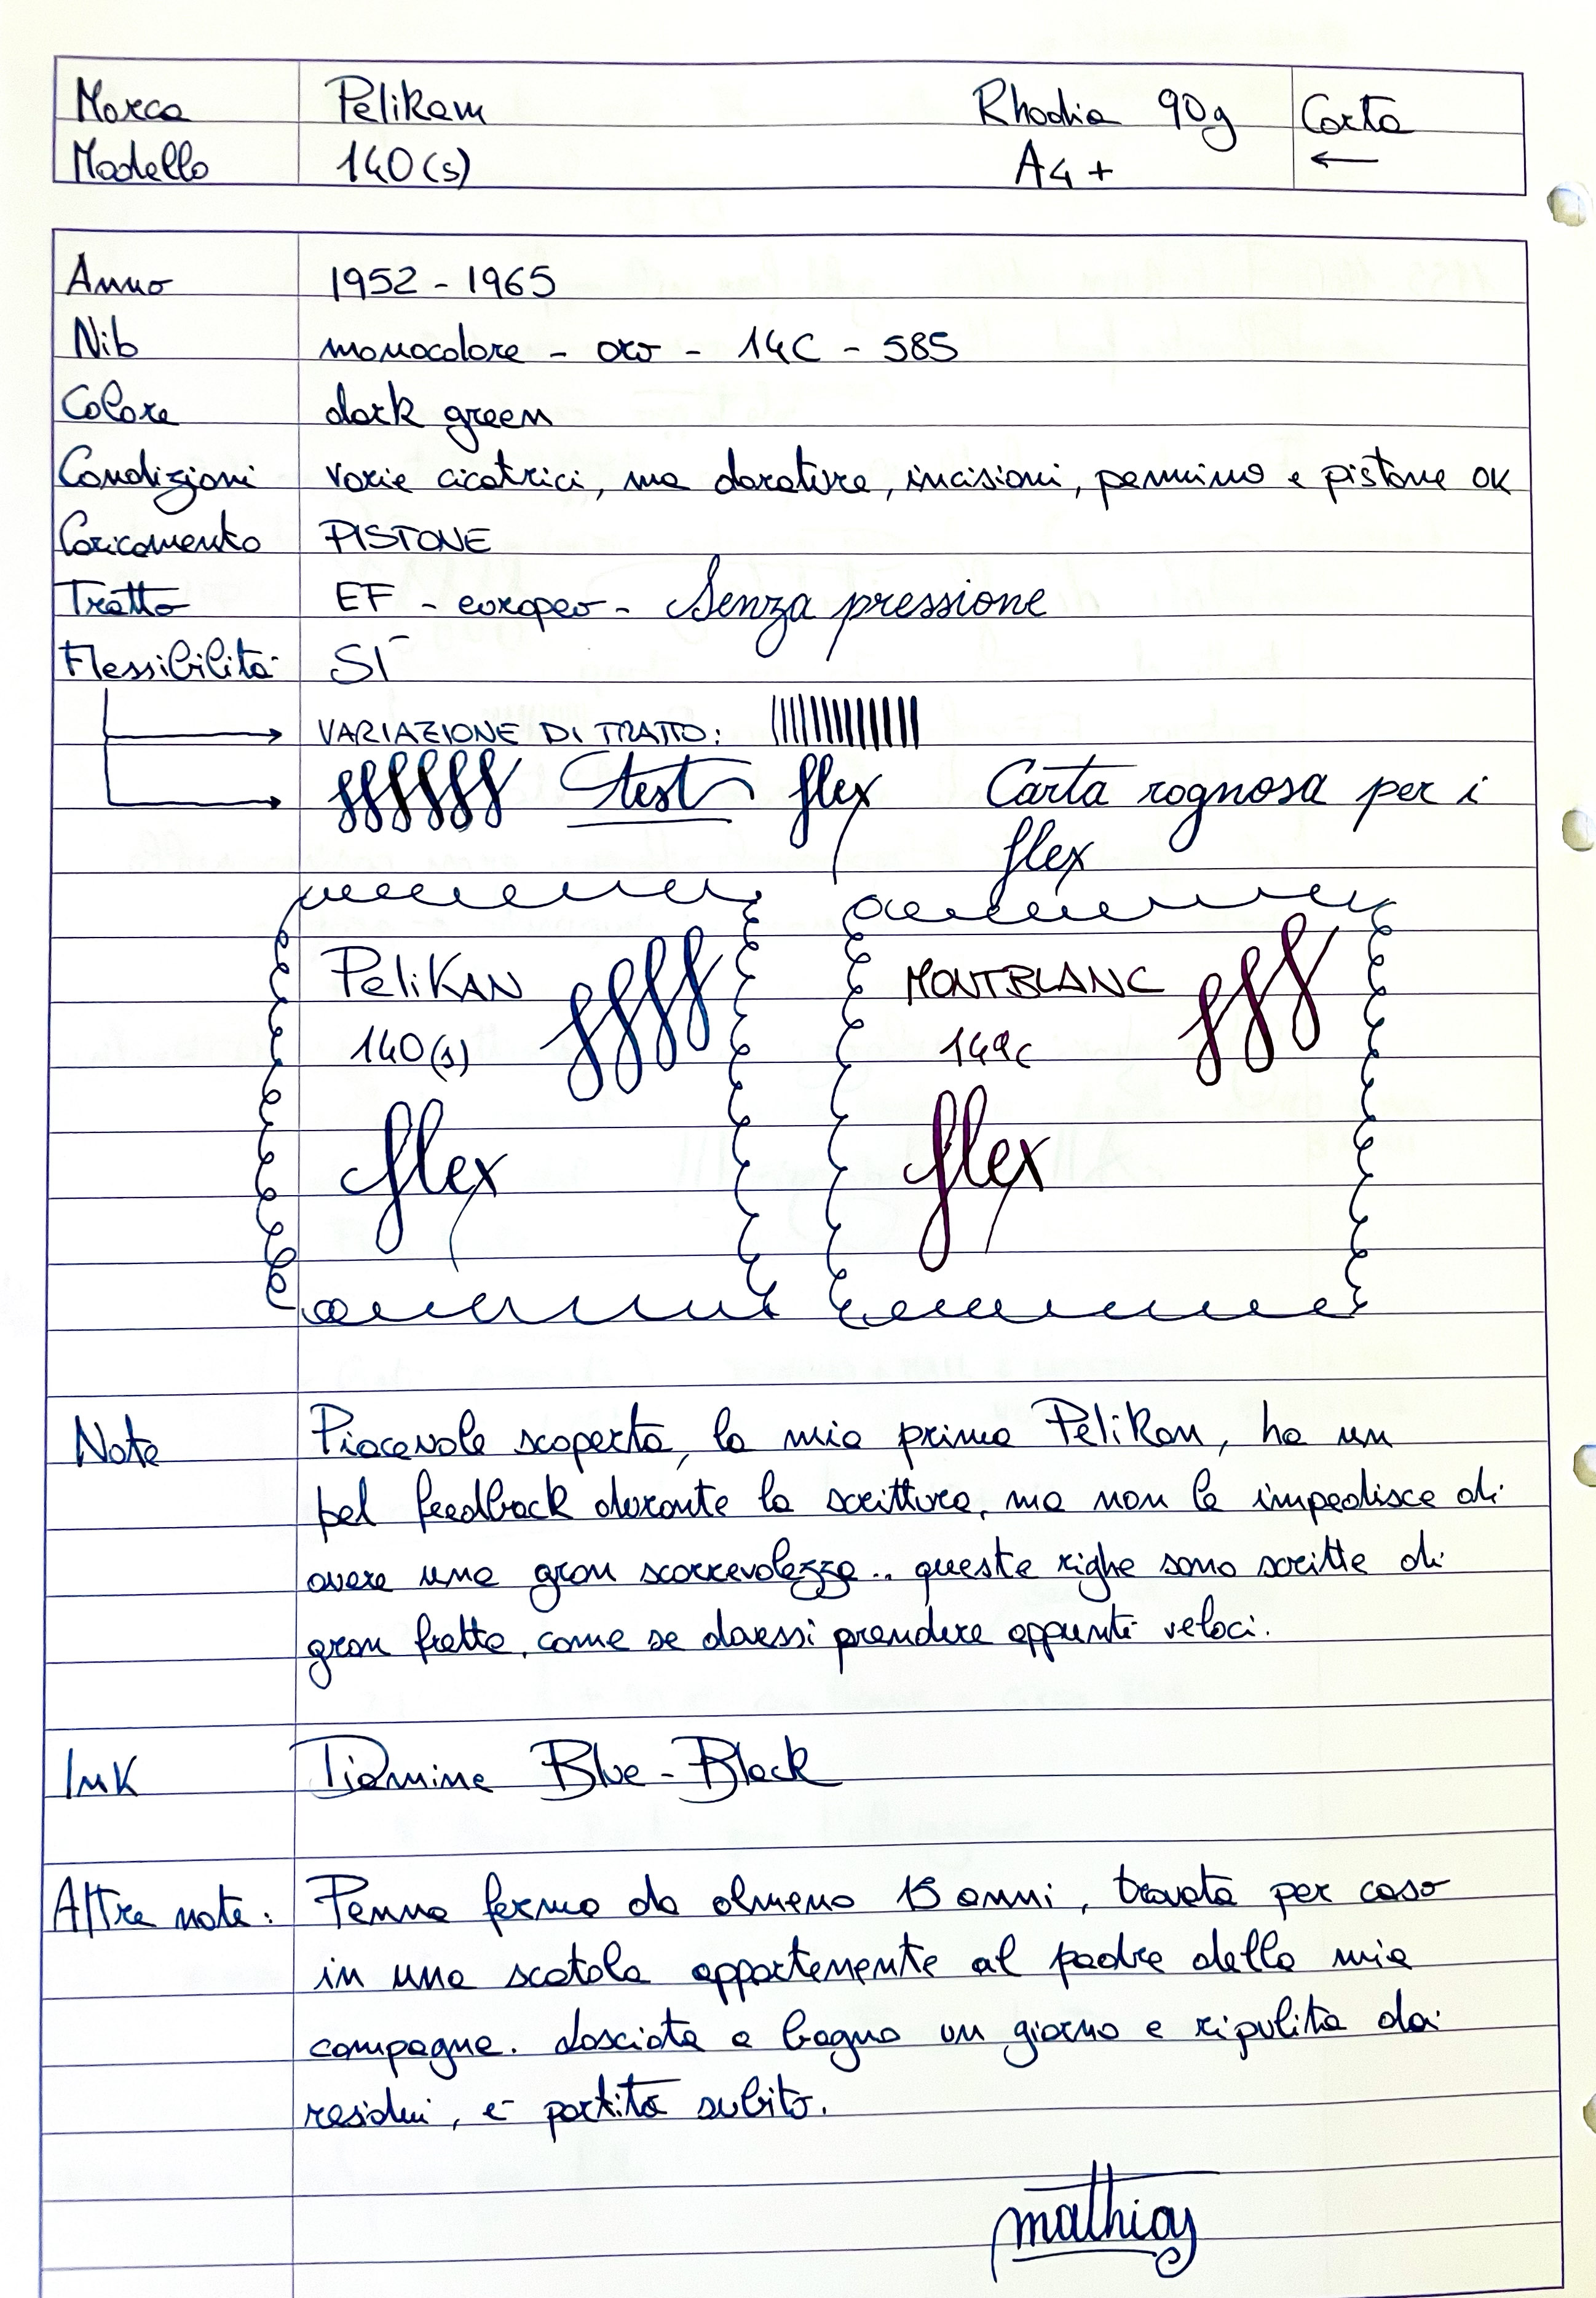 Marca Pelikan Rhodia 90g Carta
Modello 140(s) A4+ ←
Anno 1952 - 1965
Nib monocolore - oro - 14C - 585
Colore dark green
Condizioni varie cicatrici, ma dorature, incisioni, pennino e pistone OK
Caricamento PISTONE
Tratto EF - europeo - Senza pressione
Flessibilità SI
VARIAZIONE DI TRATTO:
fffffff test flex Carta rognosa per i
flex
PeliKAN ffff
140(s)
flex
MONTBLANC fff
149c
flex
Note Piacevole scoperta, la mia prima Pelikan, ha un
bel feedback durante la scrittura, ma non le impedisce di
avere una gran scorrevolezza.. queste righe sono scritte di
gran fretta, come se dovessi prendere appunti veloci.
Ink Diamine Blue-Black
Altre note: Penna ferma da almeno 15 anni, trovata per caso
in una scatola appartenente al padre della mia
compagna. Lasciata a bagno un giorno e ripulita dai
residui, è partita subito.
mathias